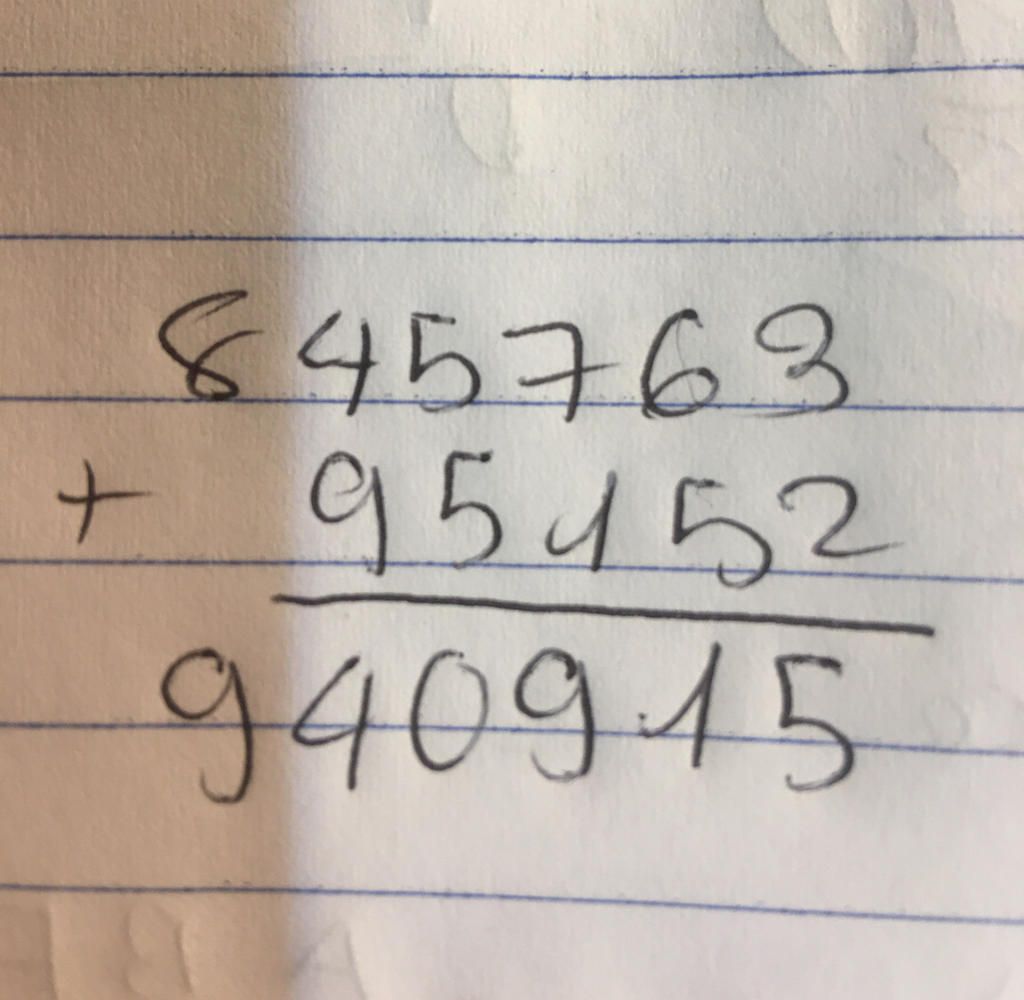 845763
+ 95152
940915